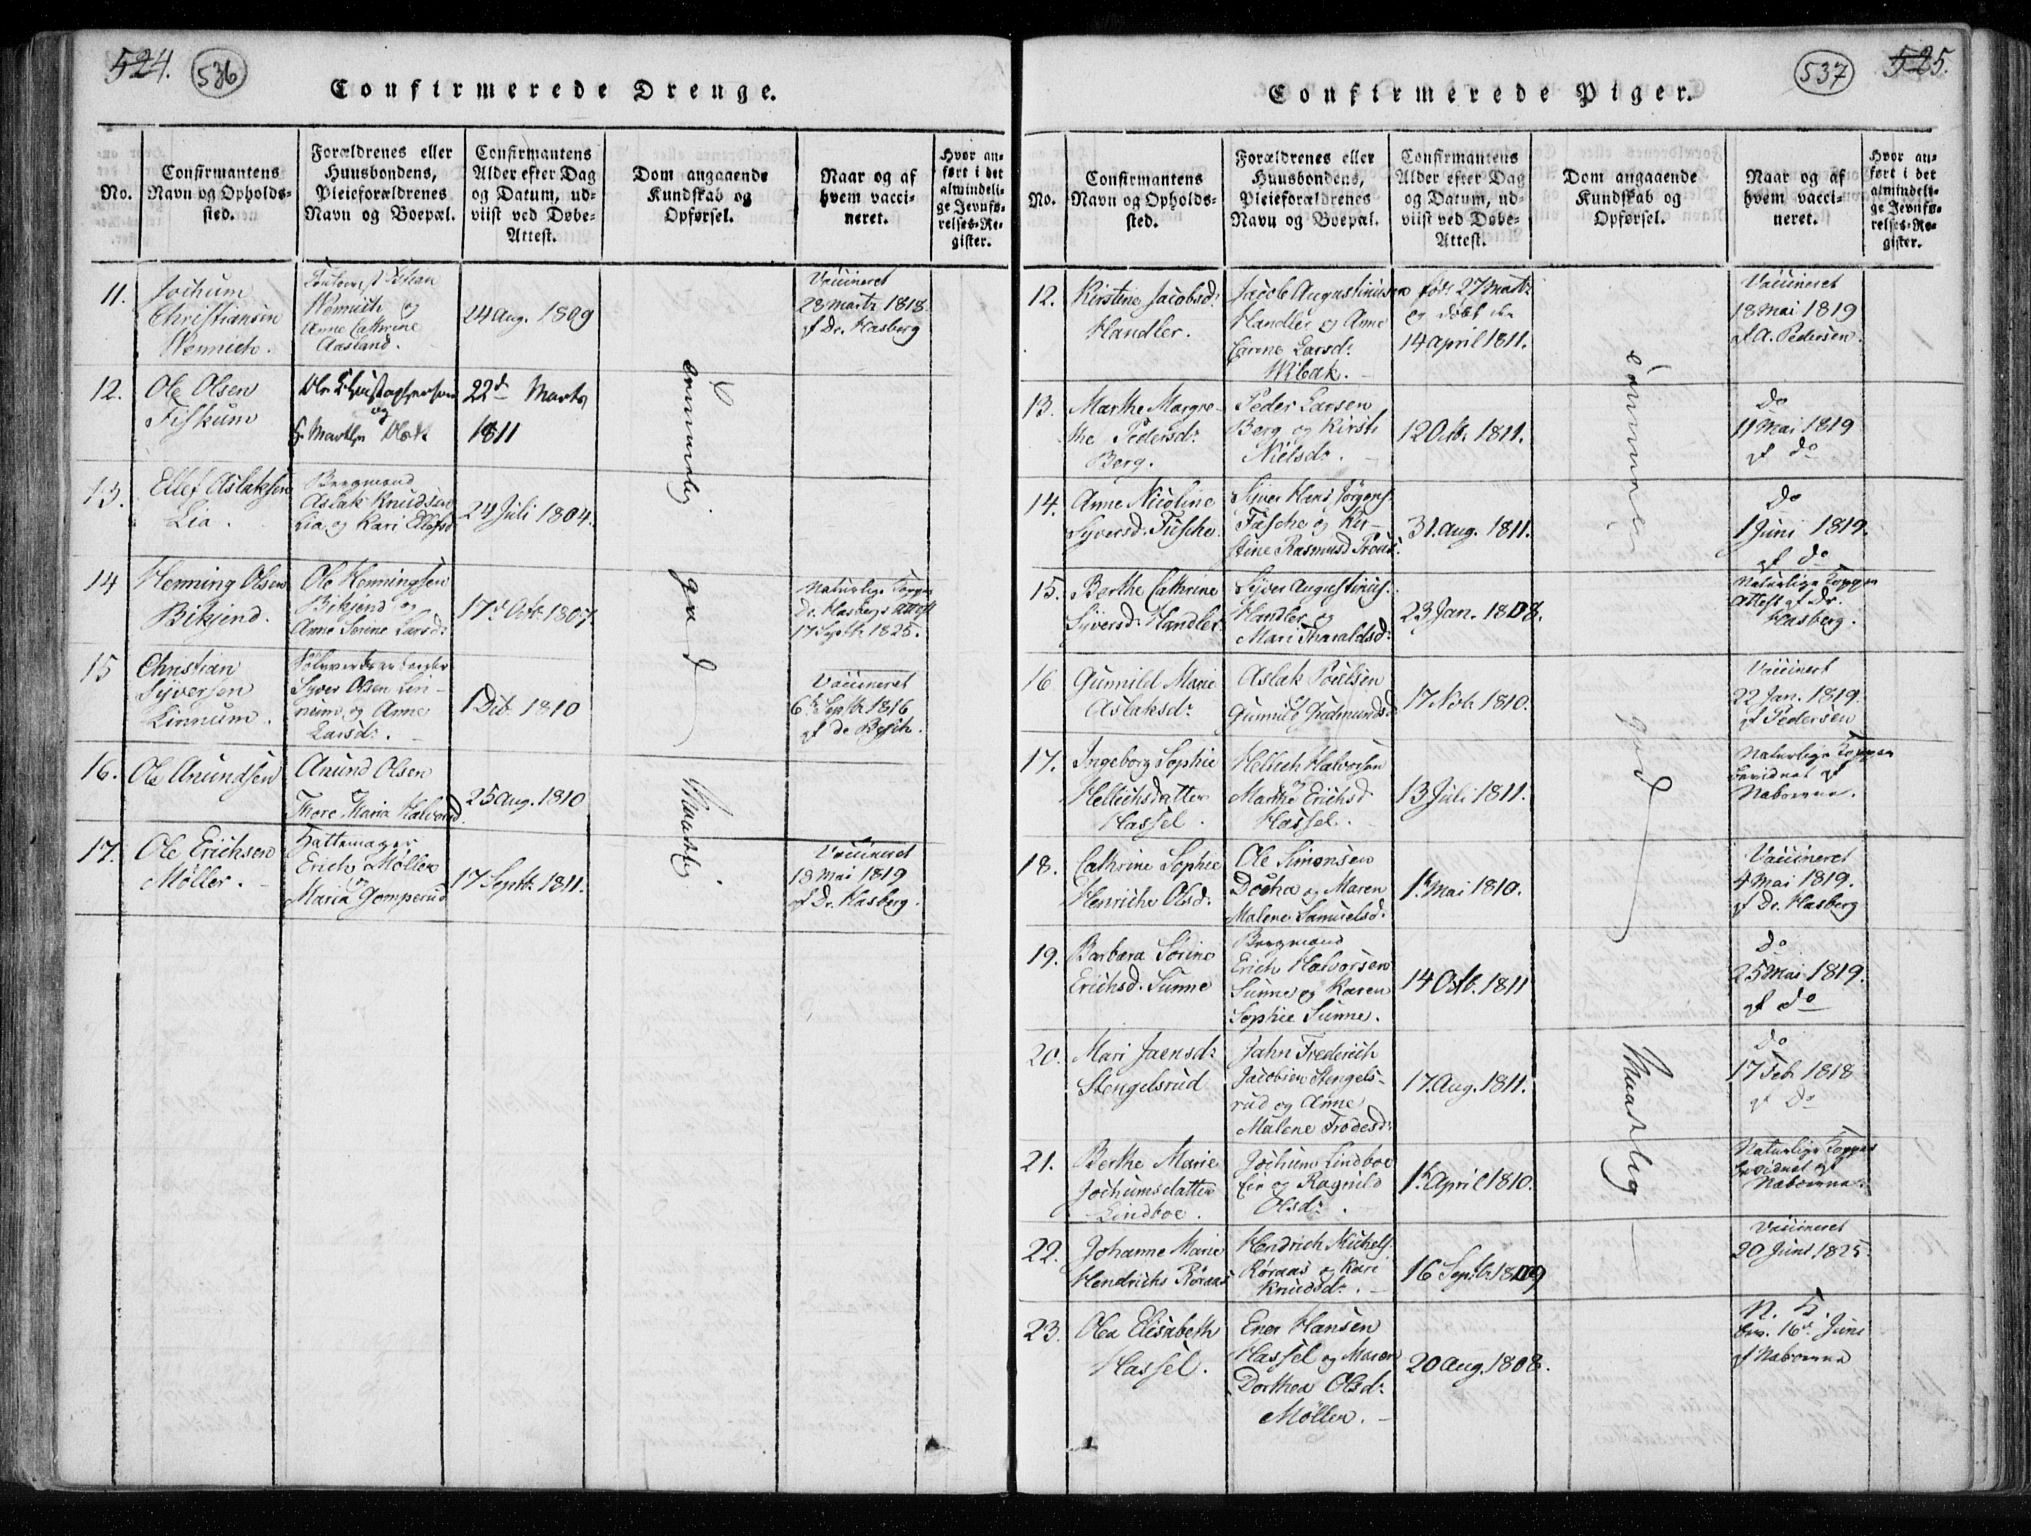 524.
536
Confirmerede Drenge.
No.
Confirmantens
Navn og Opholds-
sted.
Forældrenes eller
Huusbondens,
Pleieforældrenes
Navn og Boepæl.
Confirmantens
Alder efter Dag
og Datum, ud-
viist ved Døbe-
Attest.
Dom angaaende
Kundskab og
Opførsel.
Naar og af
hvem vacci-
neret.
Hvor an-
ført i det
almindeli-
ge Jevnfø-
relses-Re-
gister.
11.
Jochum
Christiansen
Wennich.
Wennich og
Anne Cathrine
Aasland.
24 Aug. 1809
Vaccineret
23 Martz 1818.
af Dr. Hasberg
12.
Ole Olsen
Fiskum
Ole Christophersen
og
Marthe
22d Marts
1811
13.
Ellef Aslaksen
Lia.
Bergmand
Aslak Knudsen
Lia og Kari Ellefsd
24 Juli 1804.
14
Henning Olsen
Bikjend.
Ole Henningsen
Bikjend og
Anne Serine Larsd:
17d Octb 1807.
Naturlige Kopper
Dr. Hasbergs Attest
17 Septb 1825.
15
Christian
Syversen
Linnum.
Sølvverksarbeider
Syver Olsen Lin-
num og Anne
Larsd:.
1 Dcb 1810
Vaccineret
6 Septb 1816
af
16.
Ole Anundsen
Anund Olsen
Thore Maria Halvorsd.
25 Aug. 1810
17.
Ole Erichsen
Møller.
Hattemager
Erich Møller
og
Maria Gomperud
17 Septb. 1811.
Vaccineret
18 Mai 1819
af Dr. Hasberg.
temmelig god
Maadelig
537
525.
Confirmerede Piger.
No.
Confirmantens
Navn og Opholds-
sted.
Forældrenes eller
Huusbondens,
Pleieforældrenes
Navn og Boepæl.
Confirmantens
Alder efter Dag
og Datum, ud-
viist ved Døbe-
Attest.
Dom angaaende
Kundskab og
Opførsel.
Naar og af
hvem vacci-
neret.
Hvor an-
ført i det
almindeli-
ge Jevnfø-
relses-Re-
gister.
12.
Kirstine Jacobsd:
Handler.
Jacob Augustinusen
Handler og Anne
Carene Larsd:
Wibak.
født 27 Martz
og døbt den
14 April 1811.
Vaccineret
18 Mai 1819
af A. Pedersen.
13.
Marthe Margre-
the Pedersd:
Berg.
Peder Larsen
Berg og Kirsti
Nielsd:
12 Octb. 1811.
Do
11 Mai 1819
af do
14.
Anne Nicoline
Syversd. Fusche.
Syver Hans Jørgens:
Fusche og Kir-
stine Rasmusd
31. Aug. 1811.
Do
1 Juni 1819.
af do
15.
Berthe Cathrine
Syversd: Handler
Syver Augustinus:
Handler og
Mari Tharaldsd:
23 Jan. 1808.
Naturlige Kopper
Attest af Dr.
Hasberg.
16
Gunnild Marie
Aslaksd:
Aslak Poulsen
og
Gunnild Gudmundsd
17 Nov. 1810.
Vaccineret
22 Jan. 1819.
af Pedersen
17.
Ingeborg Sophie
Hellichsdatter
Hassel.
Hellich Halvorsen
og
Marthe Erichsd
Hassel.
13 Juli 1811.
Naturlige Kopper
bevidnet af
Naboerne.
18.
Cathrine Sophie
Henriche Olsd:
Ole Simonsen
Docka og Maren
Malene Samuelsd:
1 Mai 1810.
Vaccineret
4 Mai 1819.
af Dr. Hasberg
19.
Barbara Sørine
Erichsd. Sunne
Bergmand
Erich Halvorsen
Sunne og Karen
Sophie Sunne.
14 Octb. 1811
Do
25 Mai 1819.
af do
20.
Mari Jaensd:
Stengelsrud
Jahn Frederich
Jacobsen Stengels-
rud og Anne
Malene Frodesd:
17 Aug. 1811.
Do
17 Feb 1818
af Do
21.
Berthe Marie
Jochumsdatter
Lindboe.
Jochum Lindboe
Eie og Ragnild
Olsd:.
1 April 1810.
Naturlige Kopper
bevidnet af
Naboerne.
22.
Johanne Marie
Hendrichs Røraas
Hendrich Michels.
Røraas og Kari
Knudsd:.
16 Septb. 1809
Vaccineret
20 Juni 1825.
23.
Olea Elisabeth
Hassel.
Ener Hansen
Hassel og Maren
Dorthea Olsd:
Møller.
20 Aug. 1808.
N. K.
bev. 16d Juni
af Naboerne
temmelig god
Maadelig